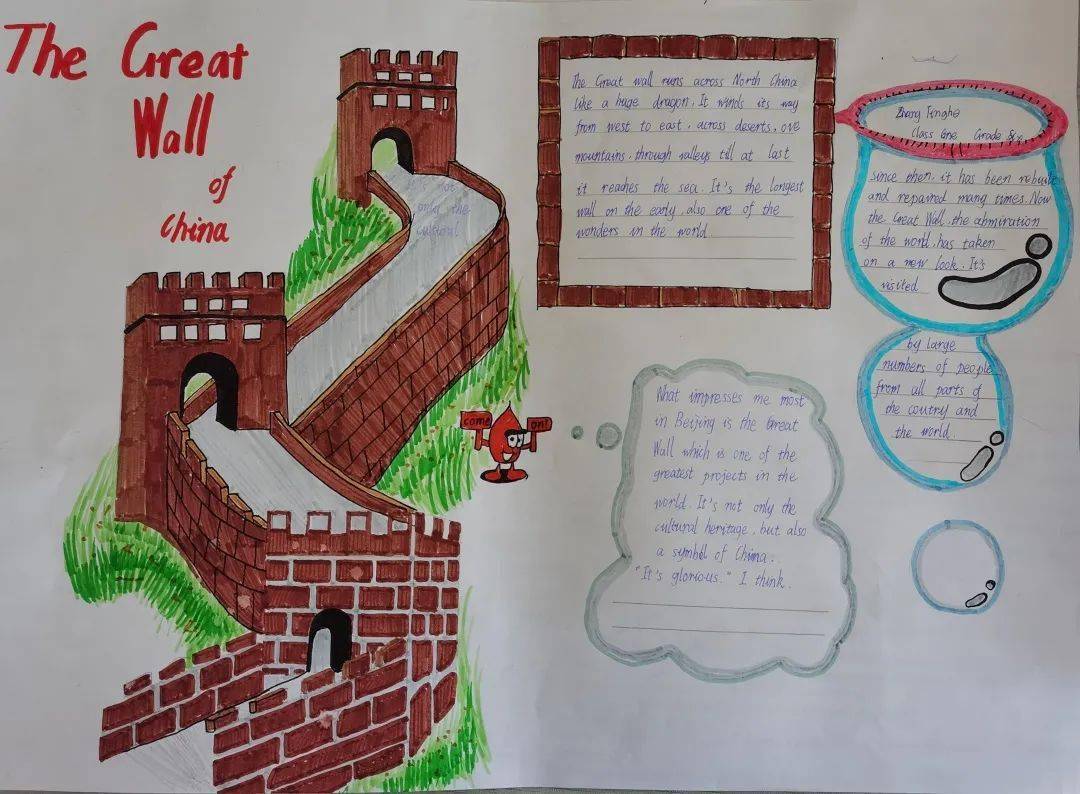 The Great
Wall
of
China
It's not
only the
cultural
come
on!
The Great wall runs across North China
like a huge dragon. It winds its way
from west to east, across deserts, ove
mountains, through valleys till at last
it reaches the sea. It's the longest
wall on the early, also one of the
wonders in the world
Class One Grade
since then, it has been rebuilt
and repaired many times. Now
the Great Wall, the abmiration
of the world, has taken
on a new look. It's
visited
by large
numbers of people
from all parts of
the coutry and
the world.
What impresses me most
in Beijing is the Great
Wall which is one of the
greatest projects in the
world. It's not only the
cultural heritage, but also
a symbol of China.
"It's glorious." I think.